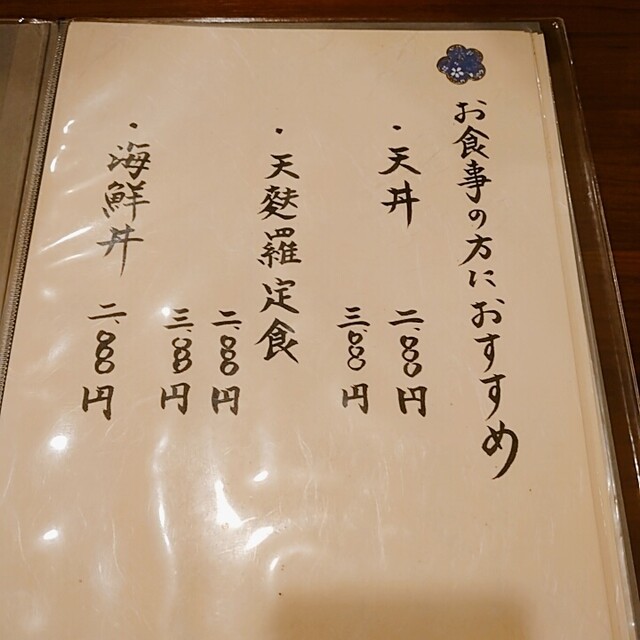 お食事の方におすすめ
・天丼
二、〇〇〇円
三、〇〇〇円
・天麩羅定食
二、〇〇〇円
三、〇〇〇円
・海鮮丼
二、〇〇〇円